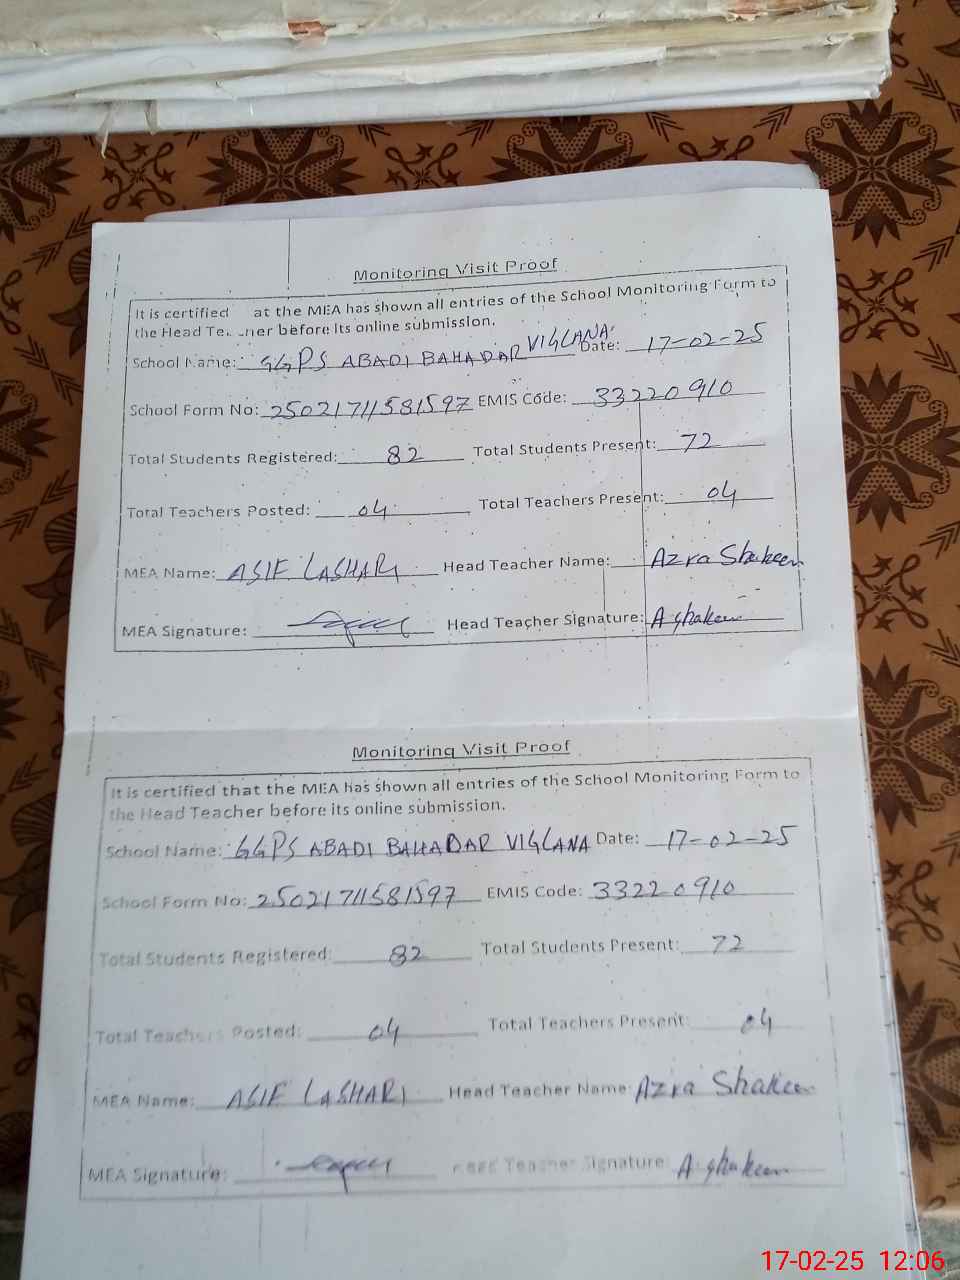 Monitoring Visit Proof
It is certified at the MEA has shown all entries of the School Monitoring Form to
the Head Te. .ner before its online submission.
School Name: GGPS ABADI BAHADAR VIGLANA Date: 17-02-25
School Form No: 25021711581597 EMIS Code: 33220910
Total Students Registered: 82 Total Students Present: 72
Total Teachers Posted: 04 Total Teachers Present: 04
MEA Name: ASIF LASHARI Head Teacher Name: Azra Shakeen
MEA Signature: Head Teacher Signature: A shakeen
Monitoring Visit Proof
It is certified that the MEA has shown all entries of the School Monitoring Form to
the Head Teacher before its online submission.
School Name: GGPS ABADI BAHADAR VIGLANA Date: 17-02-25
School Form No: 25021711581597 EMIS Code: 33220910
Total Students Registered: 82 Total Students Present: 72
Total Teachers Posted: 04 Total Teachers Present: 04
MEA Name: ASIF LASHARI Head Teacher Name: Azra Shakeen
MEA Signature: Head Teacher Signature: A shakeen
17-02-25 12:06